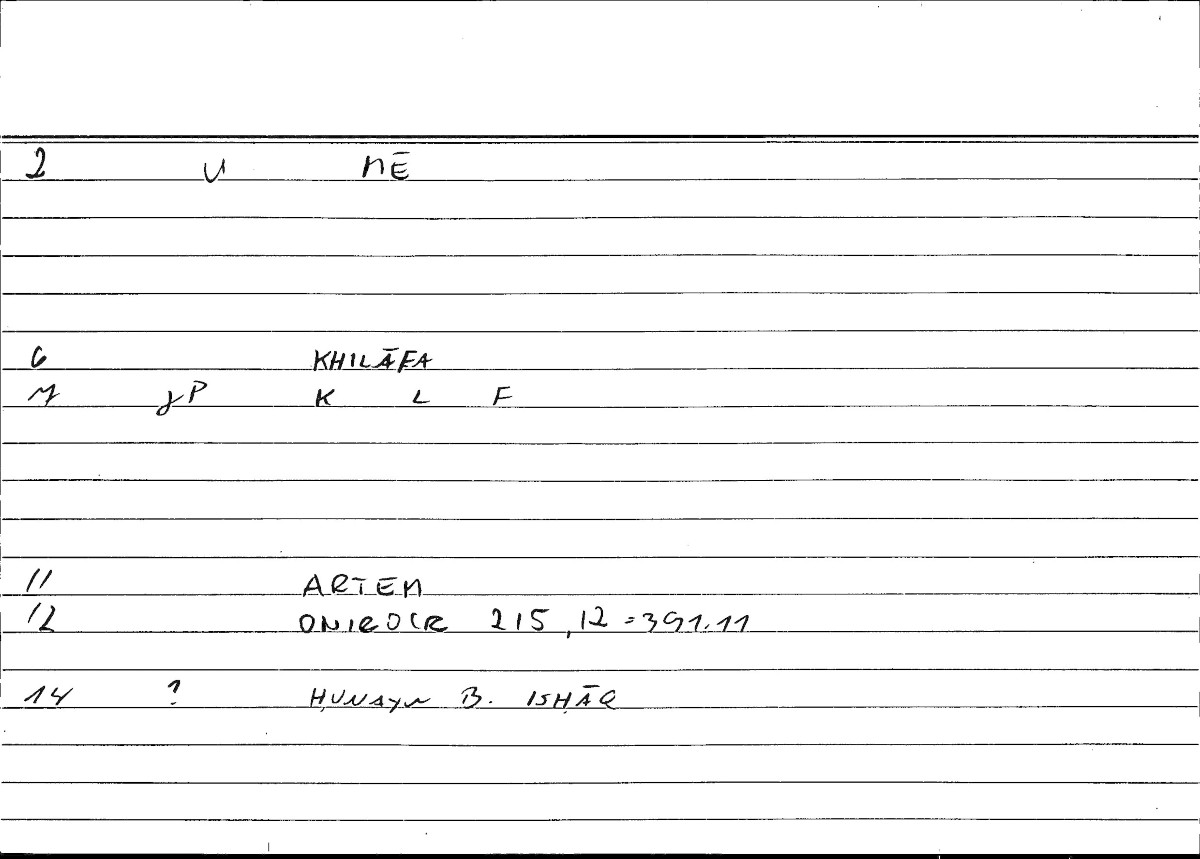 2 U MĒ
6 KHILĀFA
7 γP K L F
11 ARTEM
12 ONIROCR 215,12=391.11
14 ? ḤUNAYN B. ISḤĀQ